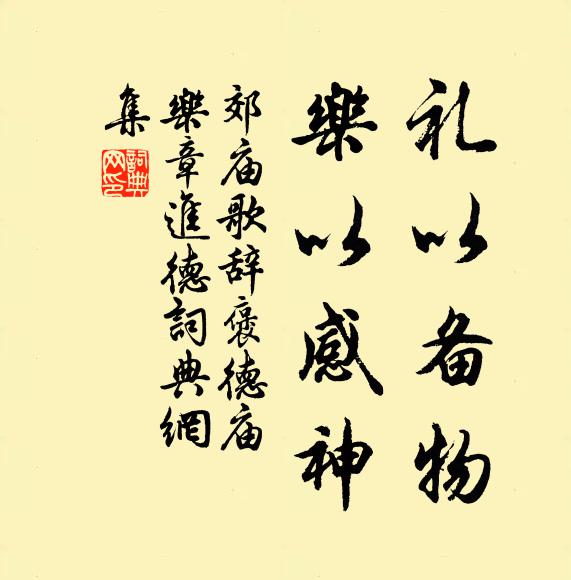 礼以备物
樂以感神
郊庙歌辞褒德庙
樂章進德詞典網
集
詞典網印